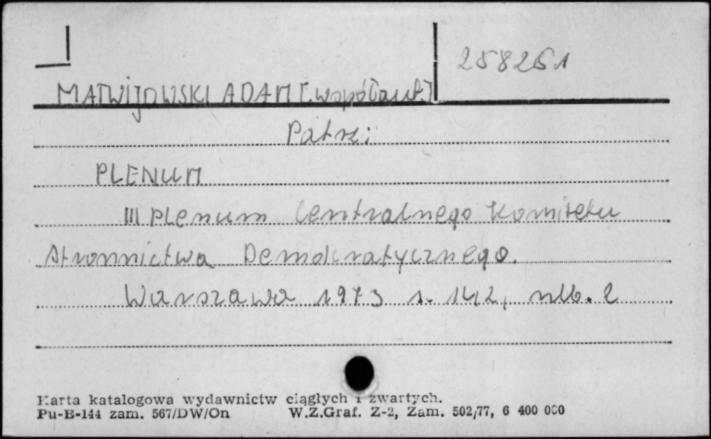 258251
MATWIJOWSKI ADAM [współaut.]
Patrz:
PLENUM
III Plenum Centralnego Komitetu
Stronnictwa Demokratycznego.
Warszawa 1973 s. 142, nlb. 2
Karta katalogowa wydawnictw ciągłych i zwartych.
Pu-B-144 zam. 567/DW/On W.Z.Graf. Z-2, Zam. 502/77, 6 400 000